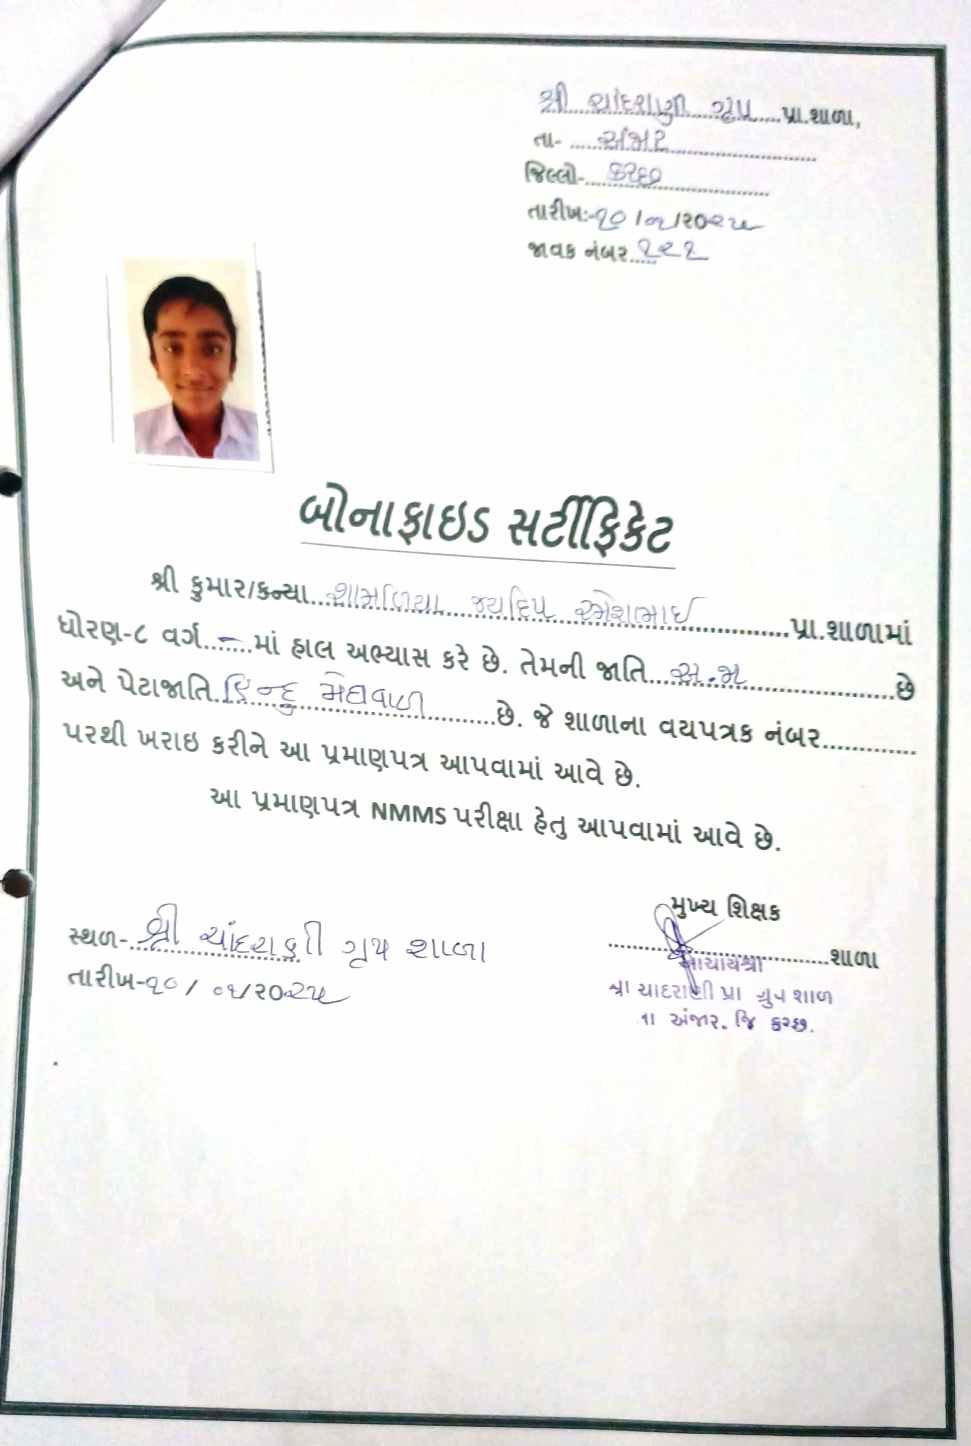 શ્રી ચાંદરાણી ગૃપ પ્રા.શાળા,
તા- અંજાર
જિલ્લો- કચ્છ
તારીખ:-૧૦/૦૧/૨૦૨૫
જાવક નંબર
બોનાફાઇડ સર્ટીફિકેટ
શ્રી કુમાર/કન્યા શામળિયા જયદિપ રમેશભાઈ પ્રા.શાળામાં
ધોરણ-૮ વર્ગ - માં હાલ અભ્યાસ કરે છે. તેમની જાતિ અ.જા છે
અને પેટાજાતિ હિન્દુ મેઘવાળ છે. જે શાળાના વયપત્રક નંબર
પરથી ખરાઇ કરીને આ પ્રમાણપત્ર આપવામાં આવે છે.
આ પ્રમાણપત્ર NMMS પરીક્ષા હેતુ આપવામાં આવે છે.
મુખ્ય શિક્ષક
સ્થળ- શ્રી ચાંદરાણી ગૃપ શાળા
શાળા
તારીખ-૧૦/૦૧/૨૦૨૫
આચાર્યશ્રી
શ્રી ચાંદરાણી પ્રા ગ્રુપ શાળા
તા અંજાર. જિ કચ્છ.